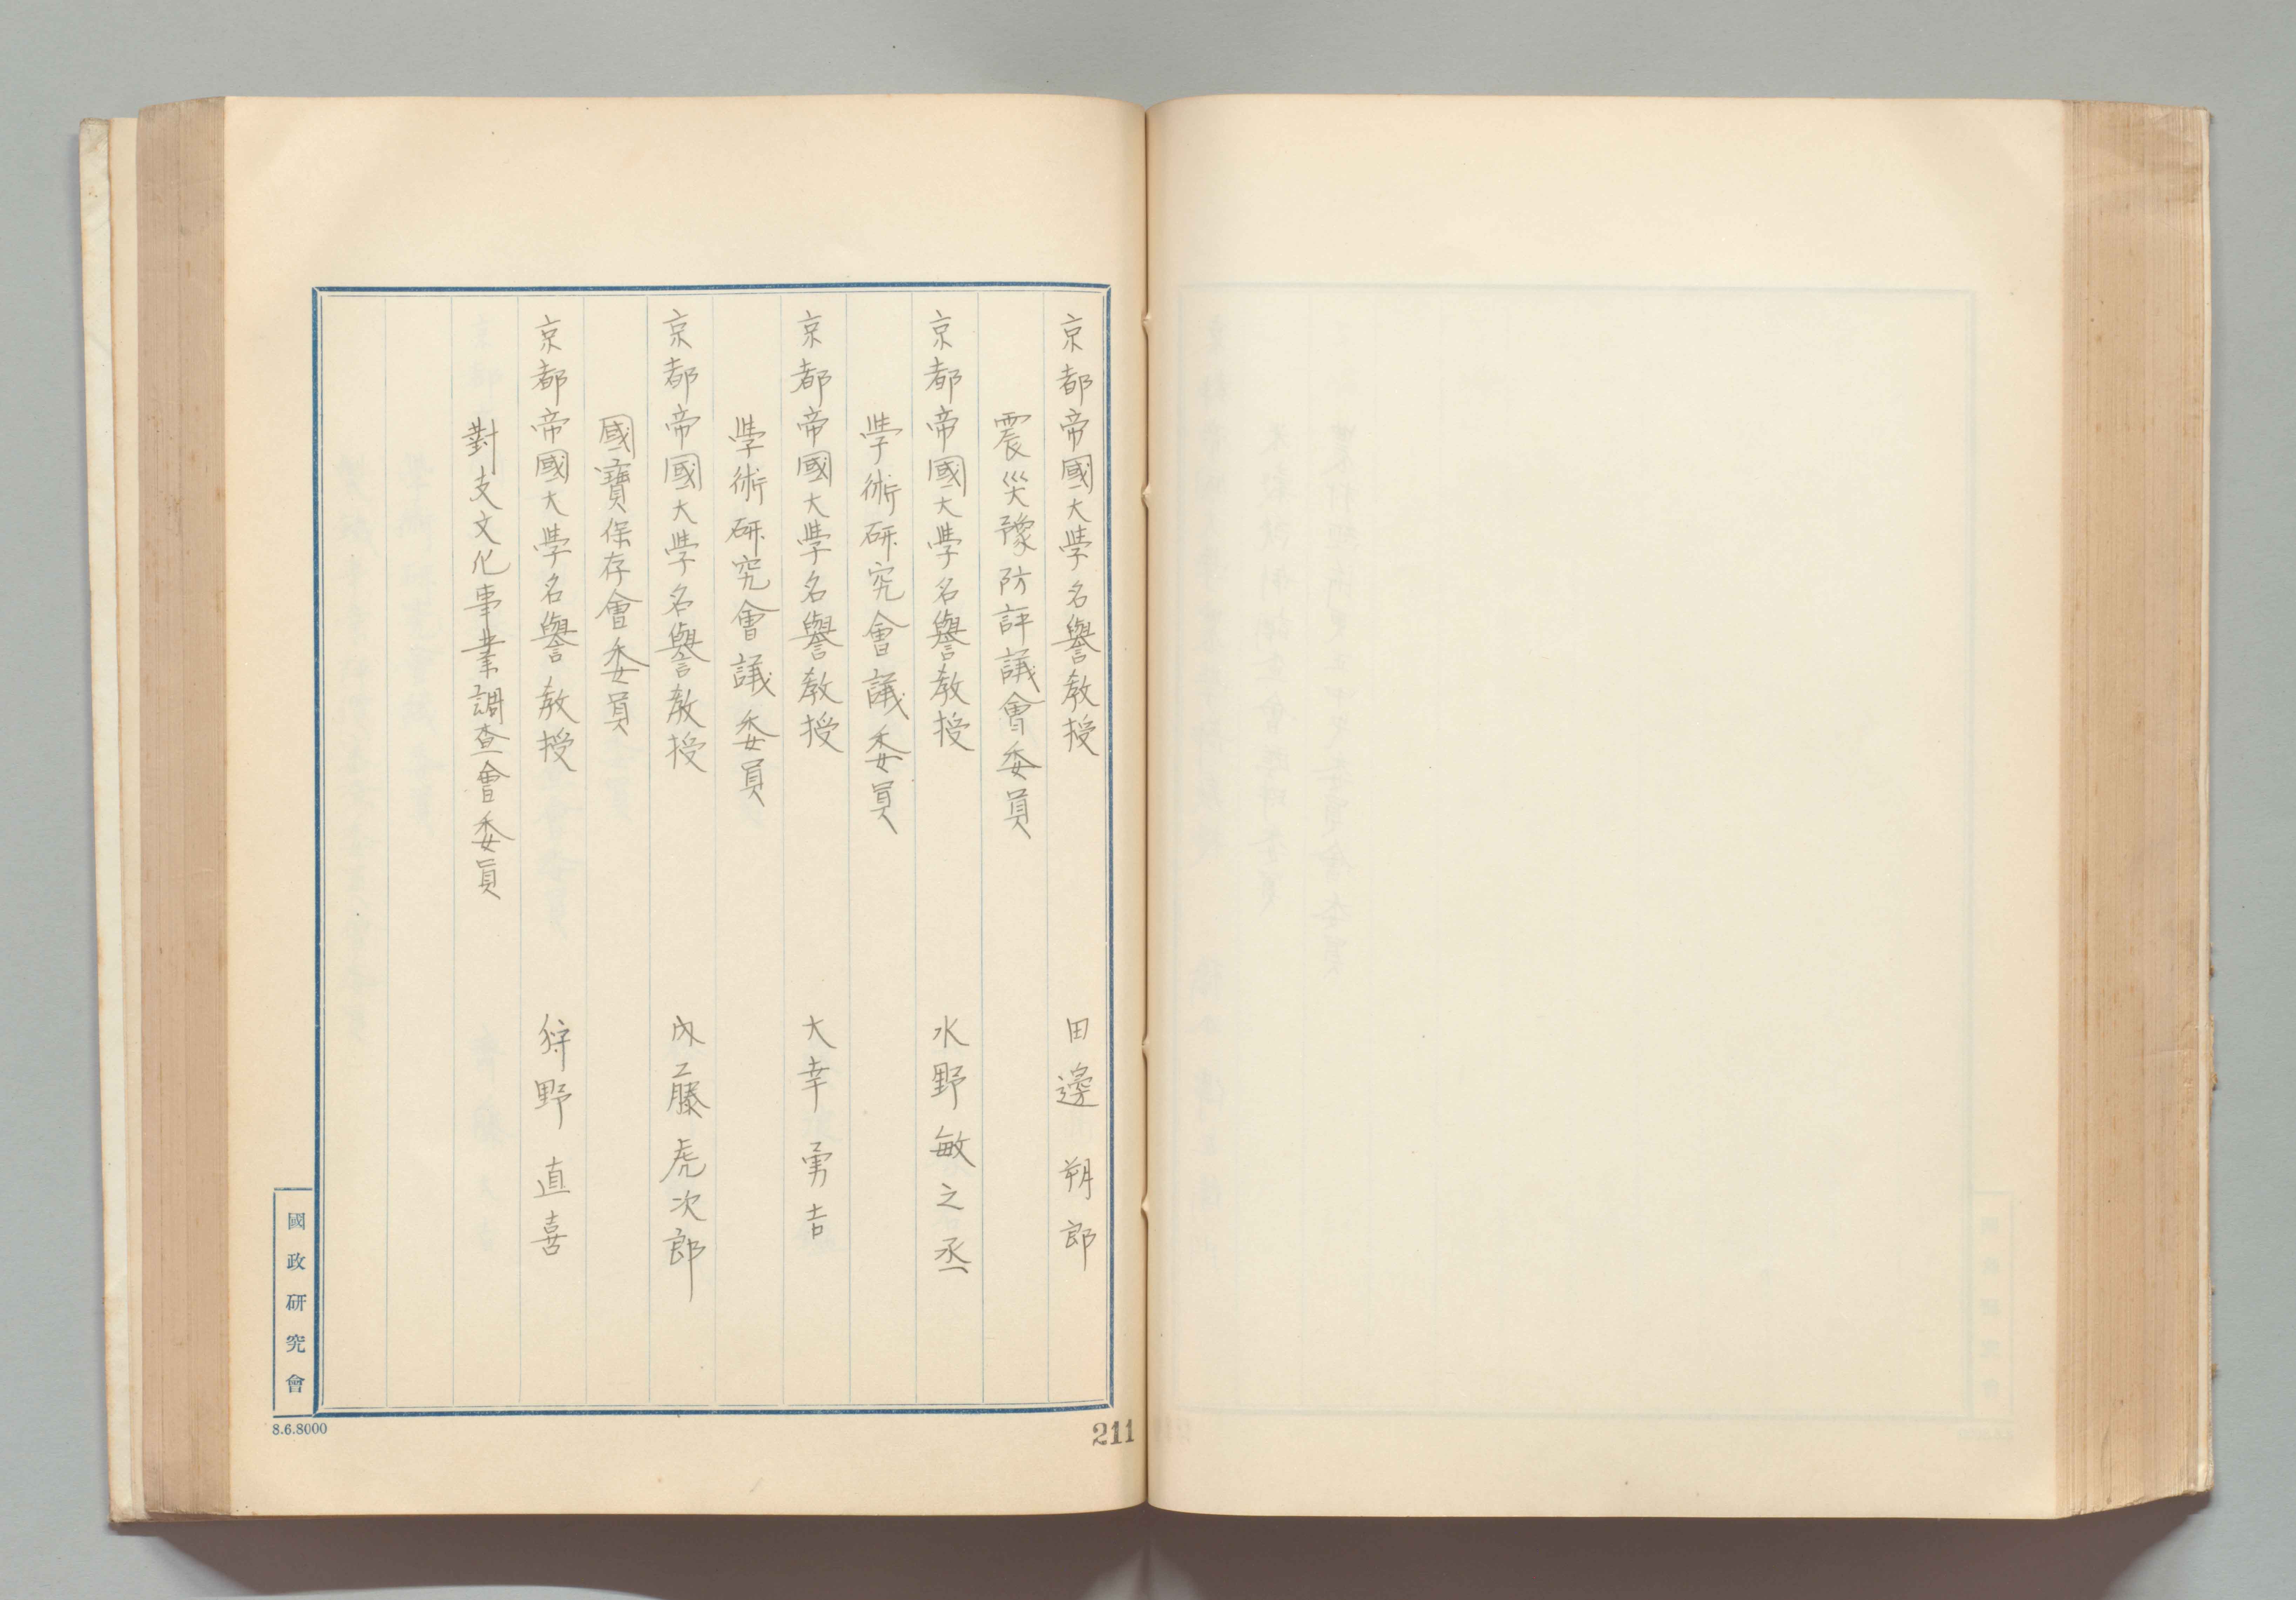 京都帝國大學名譽教授 田邊朔郎
震災豫防評議會委員
京都帝國大學名譽教授 水野敏之丞
學術研究會議委員
京都帝國大學名譽教授 大幸勇吉
學術研究會議委員
京都帝國大學名譽教授 內藤虎次郎
國寶保存會委員
京都帝國大學名譽教授 狩野直喜
對支文化事業調查會委員
國政研究會
8.6.8000
211